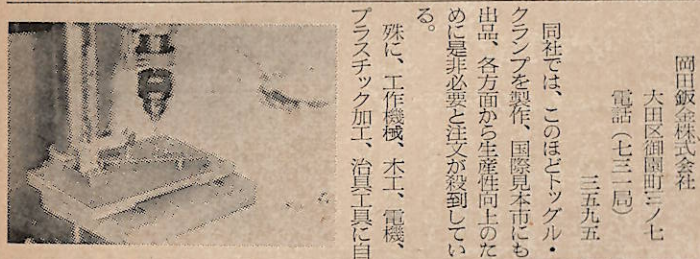 岡田鈑金株式会社
大田区御園町三ノ七
電話（七三一局）
三五九五
同社では、このほどトッグル・
クランプを製作、国際見本市にも
出品、各方面から生産性向上のた
めに是非必要と注文が殺到してい
る。
殊に、工作機械、木工、電機、
プラスチック加工、治具工具に自